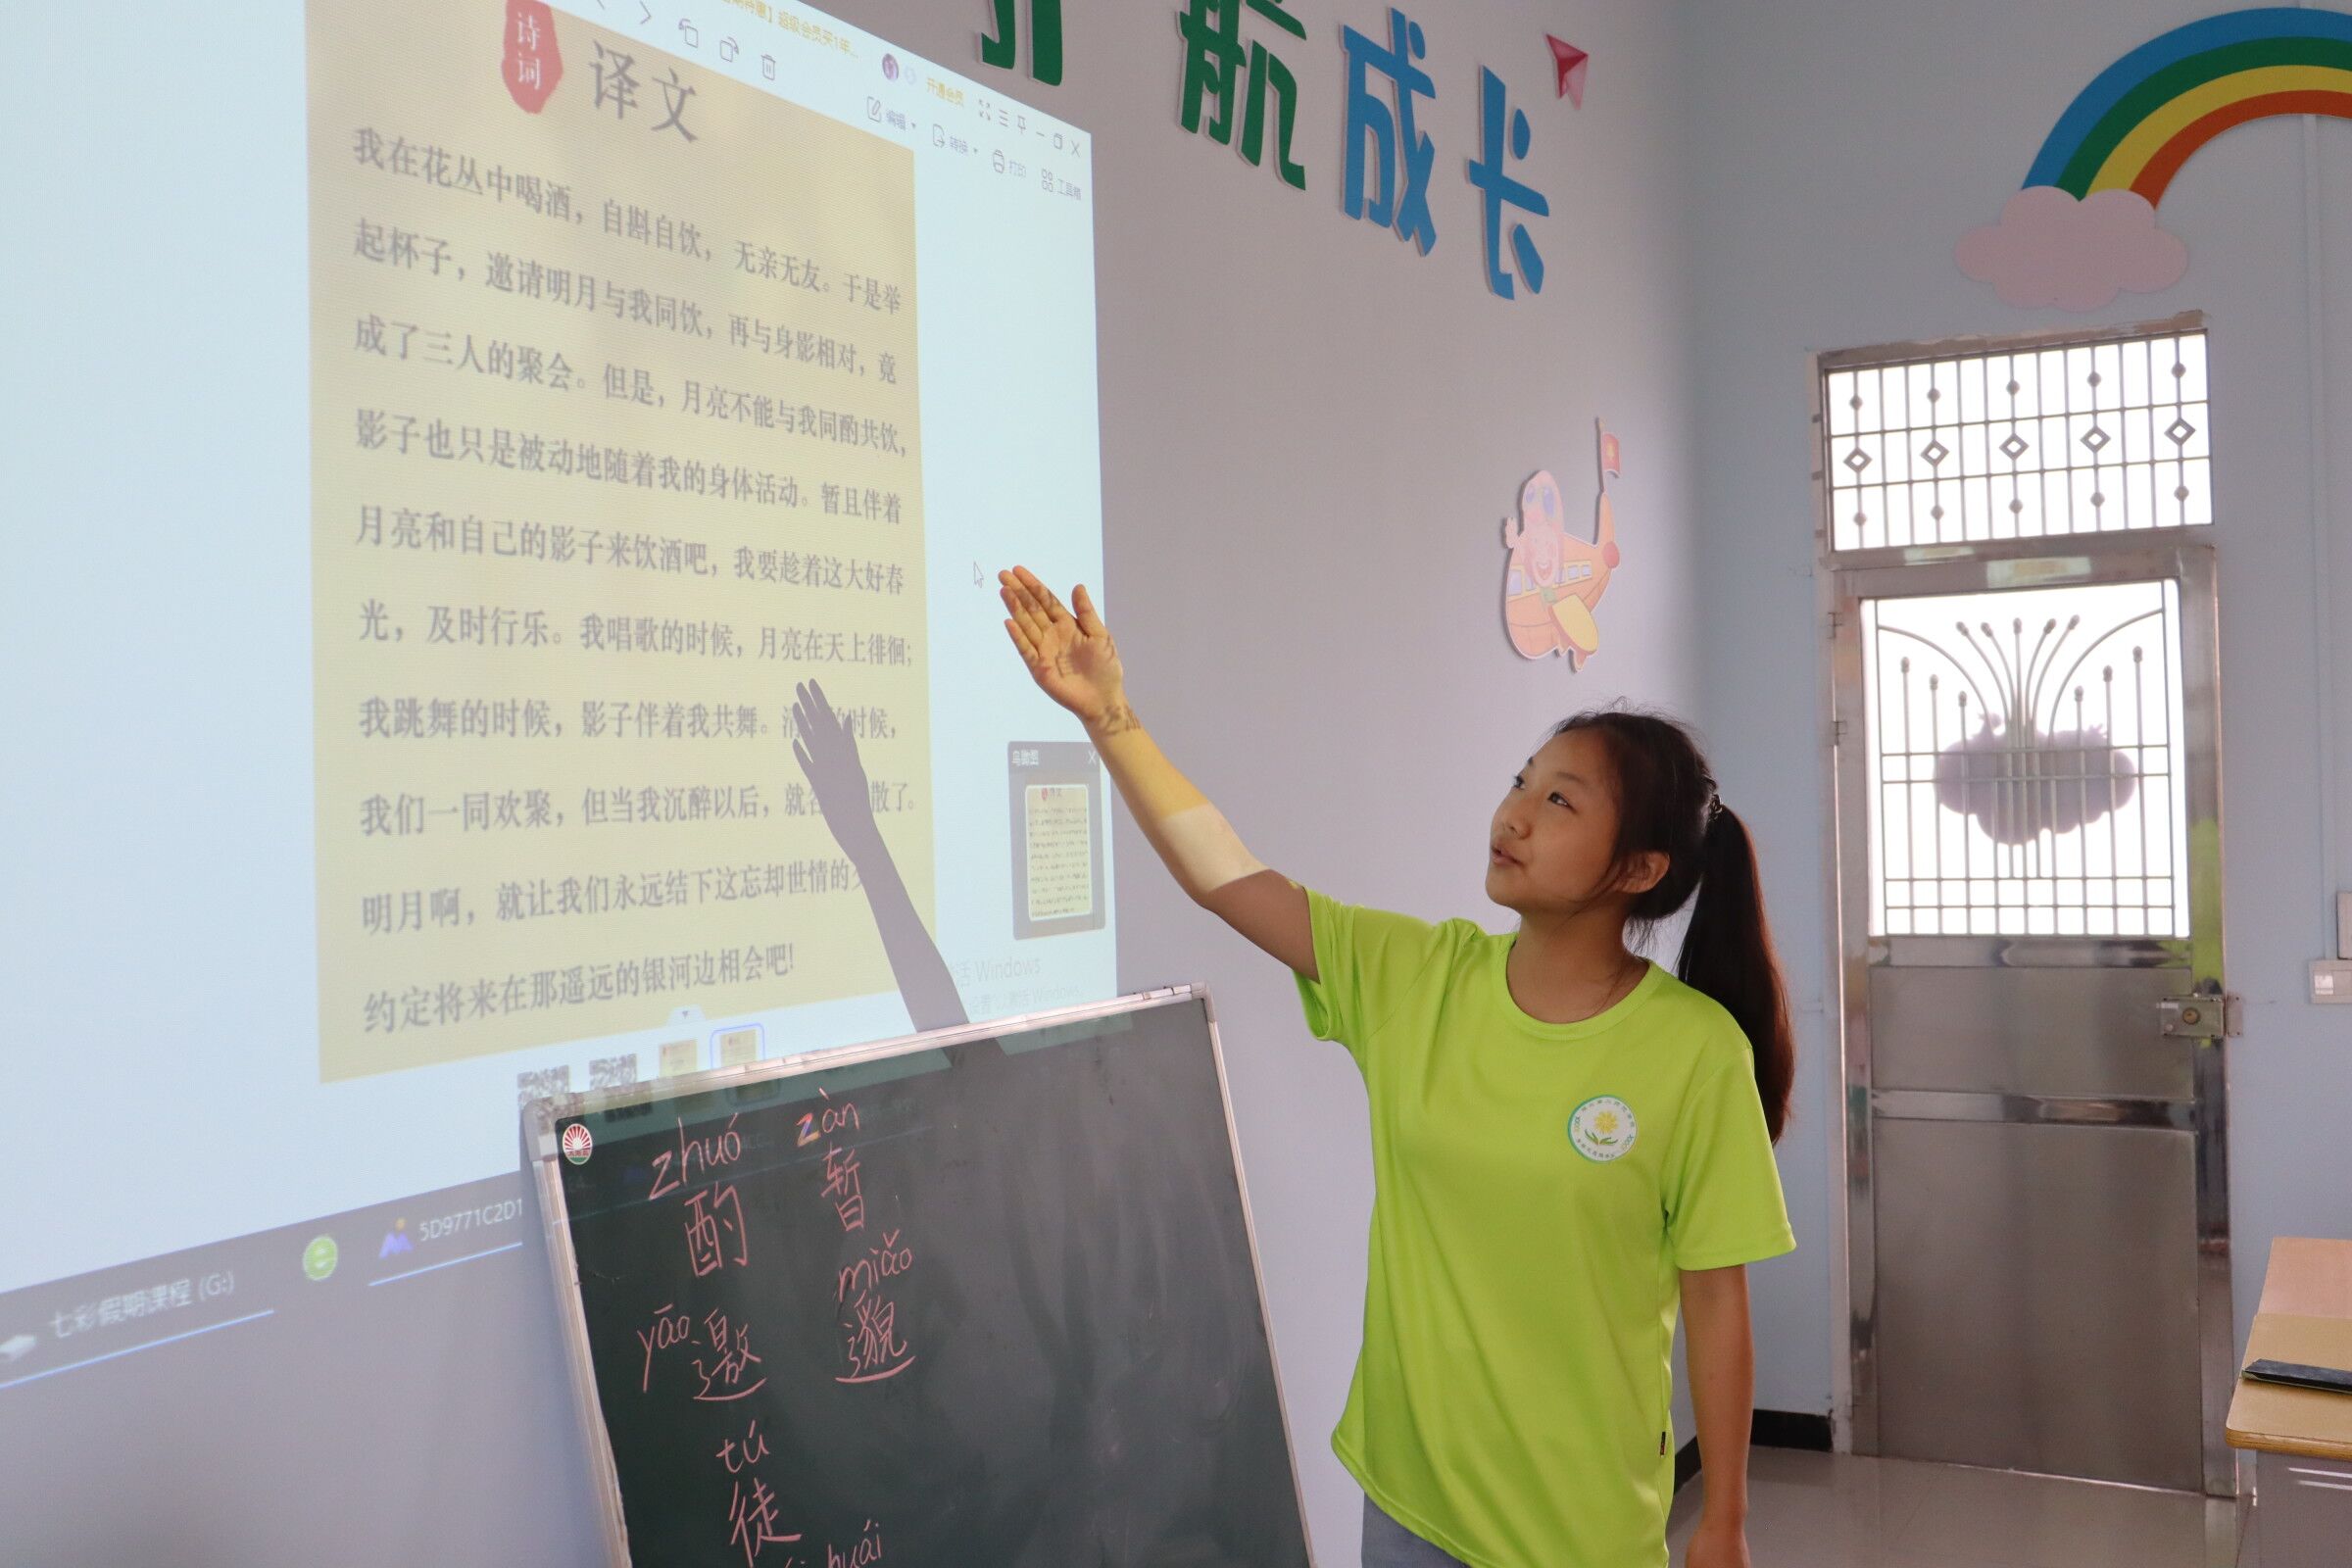 诗词
译文
我在花丛中喝酒，自斟自饮，无亲无友。于是举
起杯子，邀请明月与我同饮，再与身影相对，竟
成了三人的聚会。但是，月亮不能与我同酌共饮，
影子也只是被动地随着我的身体活动。暂且伴着
月亮和自己的影子来饮酒吧，我要趁着这大好春
光，及时行乐。我唱歌的时候，月亮在天上徘徊；
我跳舞的时候，影子伴着我共舞。清 时候，
我们一同欢聚，但当我沉醉以后，就各 散了。
明月啊，就让我们永远结下这忘却世情的
约定将来在那遥远的银河边相会吧!
超级会员买1年...
开通会员
编辑
转换
打印
工具箱
鸟瞰图
活 Windows
七彩假期课程 (G:)
5D9771C2D1
航成长
zhuó zàn
酌 暂
yāo miǎo
邀 邈
tú
徒
huái